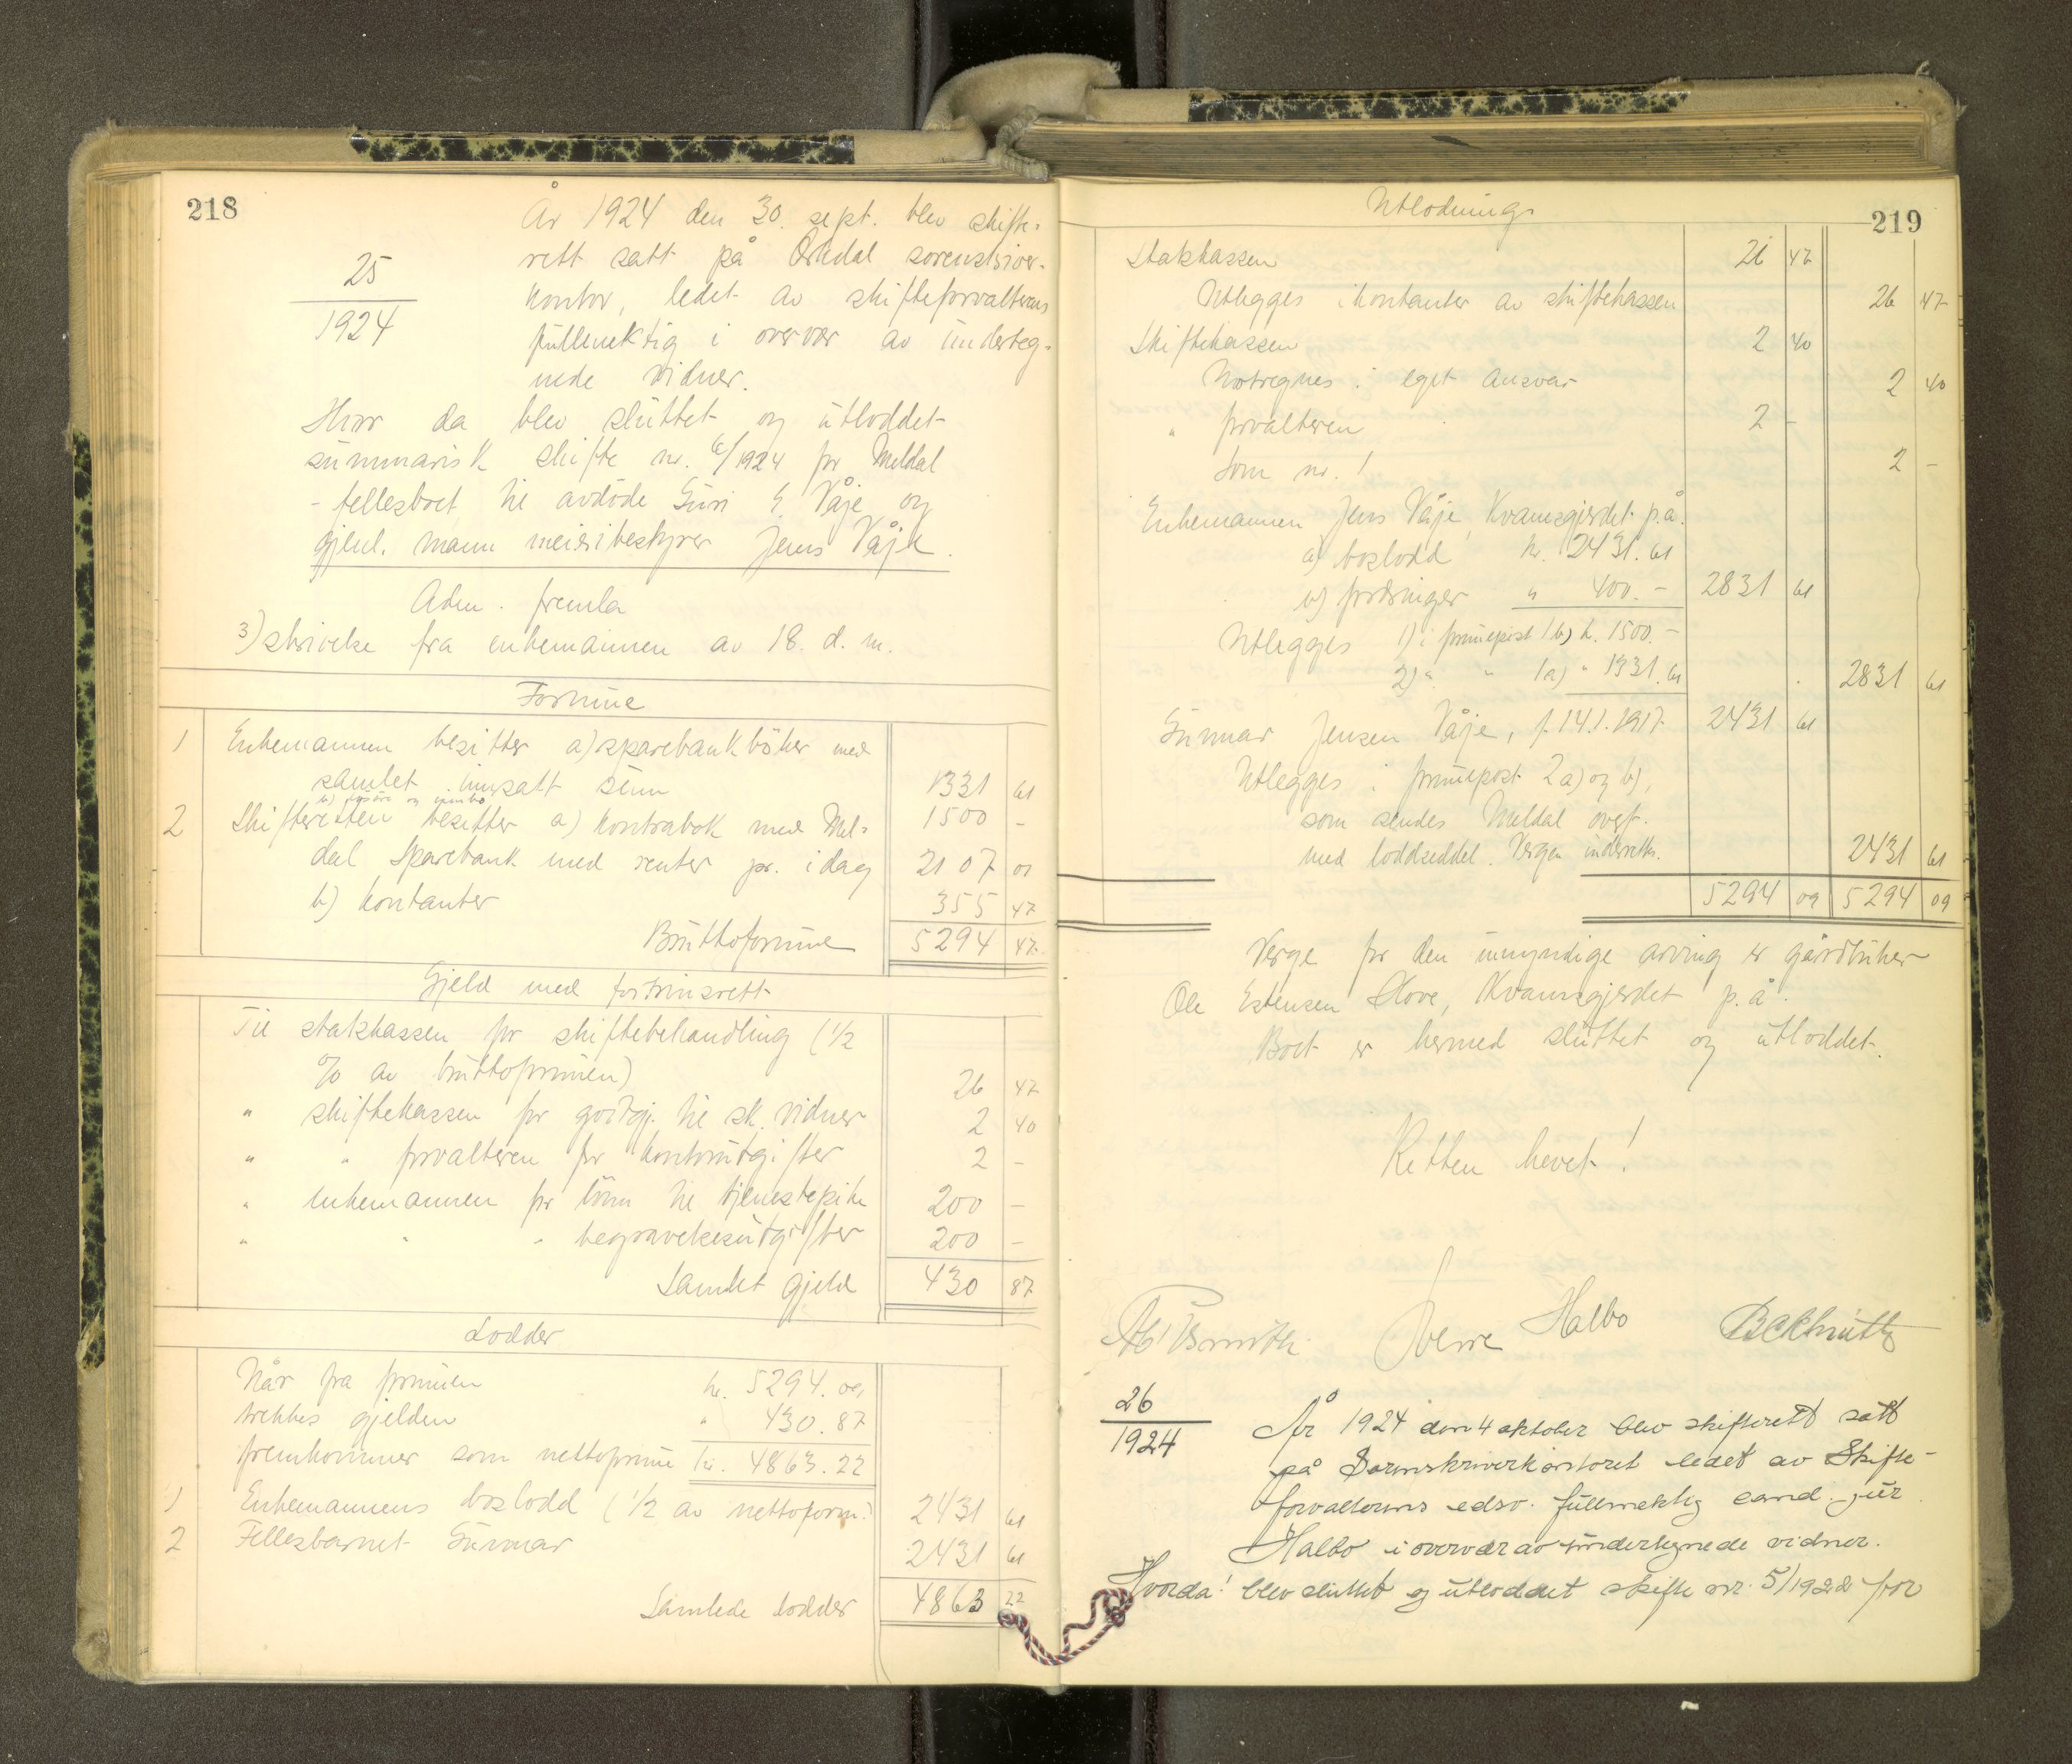 218
25
1924
År 1924 den 30. sept. blev skifte-
rett satt på Orkdal sorenskriver-
kontor, ledet av skifteforvalterens
fullmektig i overvær av underteg-
nede vidner.
Hvor da blev sluttet og utloddet
summarisk skifte nr. 6/1924 for Meldal
- fellesboet til avdöde Guri E. Våje og
gjenl. mann meieribestyrer Jens Våje.
Adm. fremla
3) skrivelse fra enkemannen av 18. d. m.
Formue
1 Enkemannen besitter a) sparebankböker med
samlet innsatt sum 1331 61
b) lösöre og innbo 1500 -
2 Skifteretten besitter a) kontrabok med Mel-
dal Sparebank med renter pr. idag 2107 01
b) kontanter 355 47
Bruttoformue 5294 47
Gjeld med fortrinsrett
Til statskassen for skiftebehandling (1/2
% av bruttoformuen) 26 47
" skiftekassen for godtgj. til sk. vidner 2 40
" " forvalteren for kontorutgifter 2 -
" enkemannen for lönn til tjenestepike 200 -
" " " begravelsesutgifter 200 -
Samlet gjeld 430 87
Lodder
Når fra formuen kr. 5294.09
trekkes gjelden " 430.87
fremkommer som nettoformue kr. 4863.22
1 Enkemannens boslodd (1/2 av nettoform.) 2431 61
2 Fellesbarnet Gunnar 2431 61
Samlede lodder 4863 22
Utlodning
219
Statskassen 26 47
Utlegges i kontanter av skiftekassen 26 47
Skiftekassen 2 40
Motregnes i eget ansvar 2 40
" forvalteren 2 -
Som nr. 1 2 -
Enkemannen Jens Våje, Kvamsgjerdet p.å.
a) boslodd kr. 2431.61
b) fordringer " 400.- 2831 61
Utlegges 1) i formuepost 1 b) kr. 1500.-
2) " " 1a) " 1331.61 2831 61
Gunnar Jensen Våje, f. 14.1.1917 2431 61
Utlegges i formuepost 2 a) og b),
som sendes Meldal overf.
med loddseddel. Vergen underrettes. 2431 61
5294 09 5294 09
Verge for den umyndige arving er gårdbruker
Ole Estensen Hove, Kvamsgjerdet p. å.
Boet er hermed sluttet og utloddet.
Retten hevet!
Sverre Halbo
26
1924
År 1924 den 4 oktober blev skifterett satt
på Sorenskriverkontoret ledet av Skifte-
forvalterens edsv. fullmektig cand. jur
Halbo i overvær av undertegnede vidner.
Hvorda! blev sluttet og utloddet skifte nr. 5/1922 for